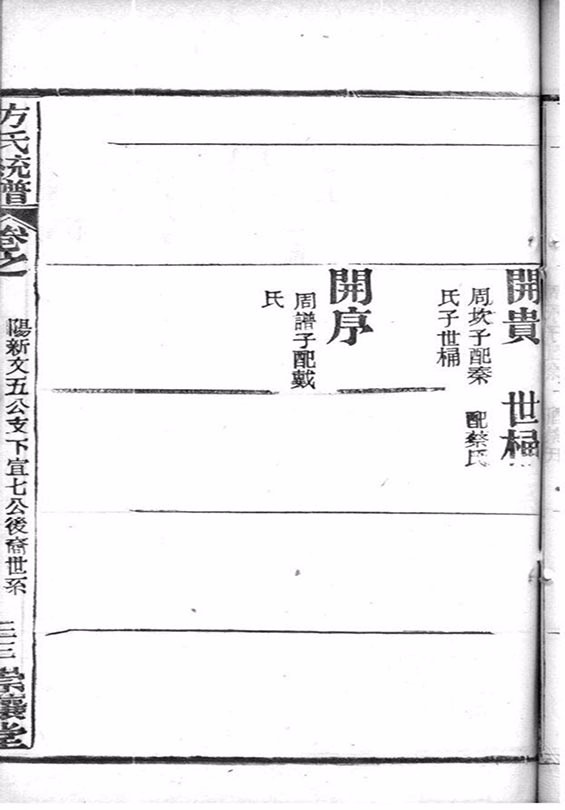 開貴
周坎子配秦
氏子世槆
世槆
配蔡氏
開序
周譜子配戴
氏
方氏統譜
卷之
陽新文五公支下宜七公後裔世系
三三
崇讓堂